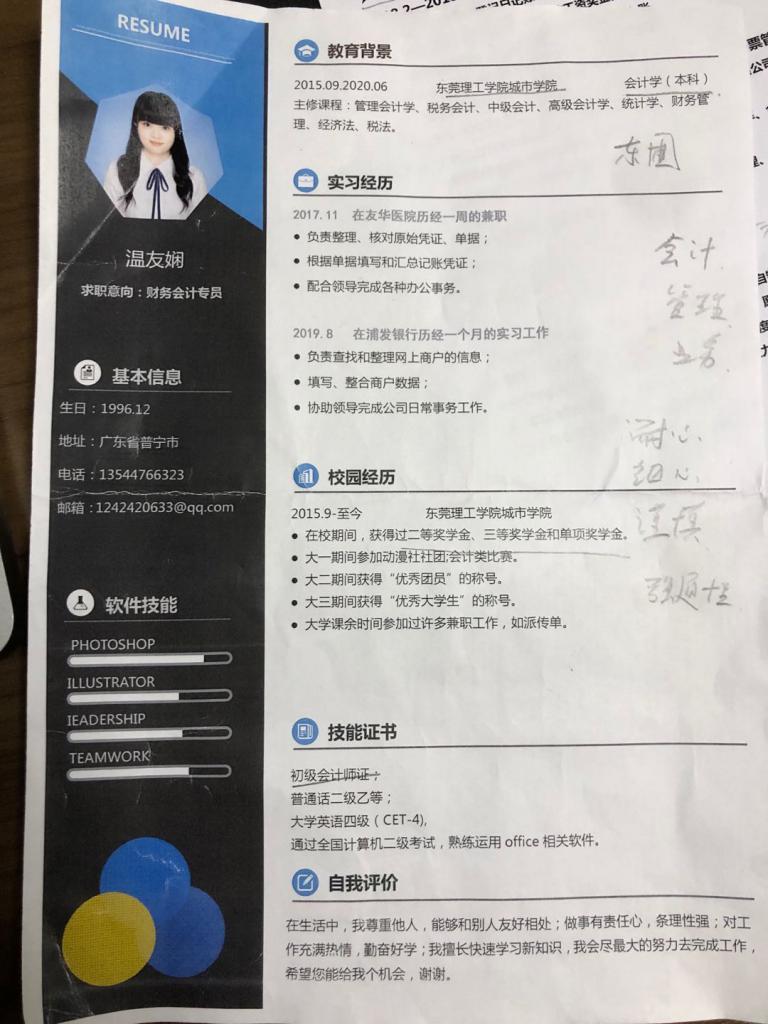 RESUME
温友娴
求职意向：财务会计专员
基本信息
生日：1996.12
地址：广东省普宁市
电话：13544766323
邮箱：1242420633@qq.com
软件技能
PHOTOSHOP
ILLUSTRATOR
IEADERSHIP
TEAMWORK
教育背景
2015.09.2020.06 东莞理工学院城市学院 会计学（本科）
主修课程：管理会计学、税务会计、中级会计、高级会计学、统计学、财务管
理、经济法、税法。
实习经历
2017.11 在友华医院历经一周的兼职
负责整理、核对原始凭证、单据；
根据单据填写和汇总记账凭证；
配合领导完成各种办公事务。
会计
管理
2019.8 在浦发银行历经一个月的实习工作
负责查找和整理网上商户的信息；
填写、整合商户数据；
协助领导完成公司日常事务工作。
耐心
细心
校园经历
2015.9-至今 东莞理工学院城市学院
在校期间，获得过二等奖学金、三等奖学金和单项奖学金。
大一期间参加动漫社社团;会计类比赛。
大二期间获得“优秀团员”的称号。
大三期间获得“优秀大学生”的称号。
大学课余时间参加过许多兼职工作，如派传单。
技能证书
初级会计师证；
普通话二级乙等；
大学英语四级（CET-4),
通过全国计算机二级考试，熟练运用 office 相关软件。
自我评价
在生活中，我尊重他人，能够和别人友好相处；做事有责任心，条理性强；对工
作充满热情，勤奋好学；我擅长快速学习新知识，我会尽最大的努力去完成工作，
希望您能给我个机会，谢谢。